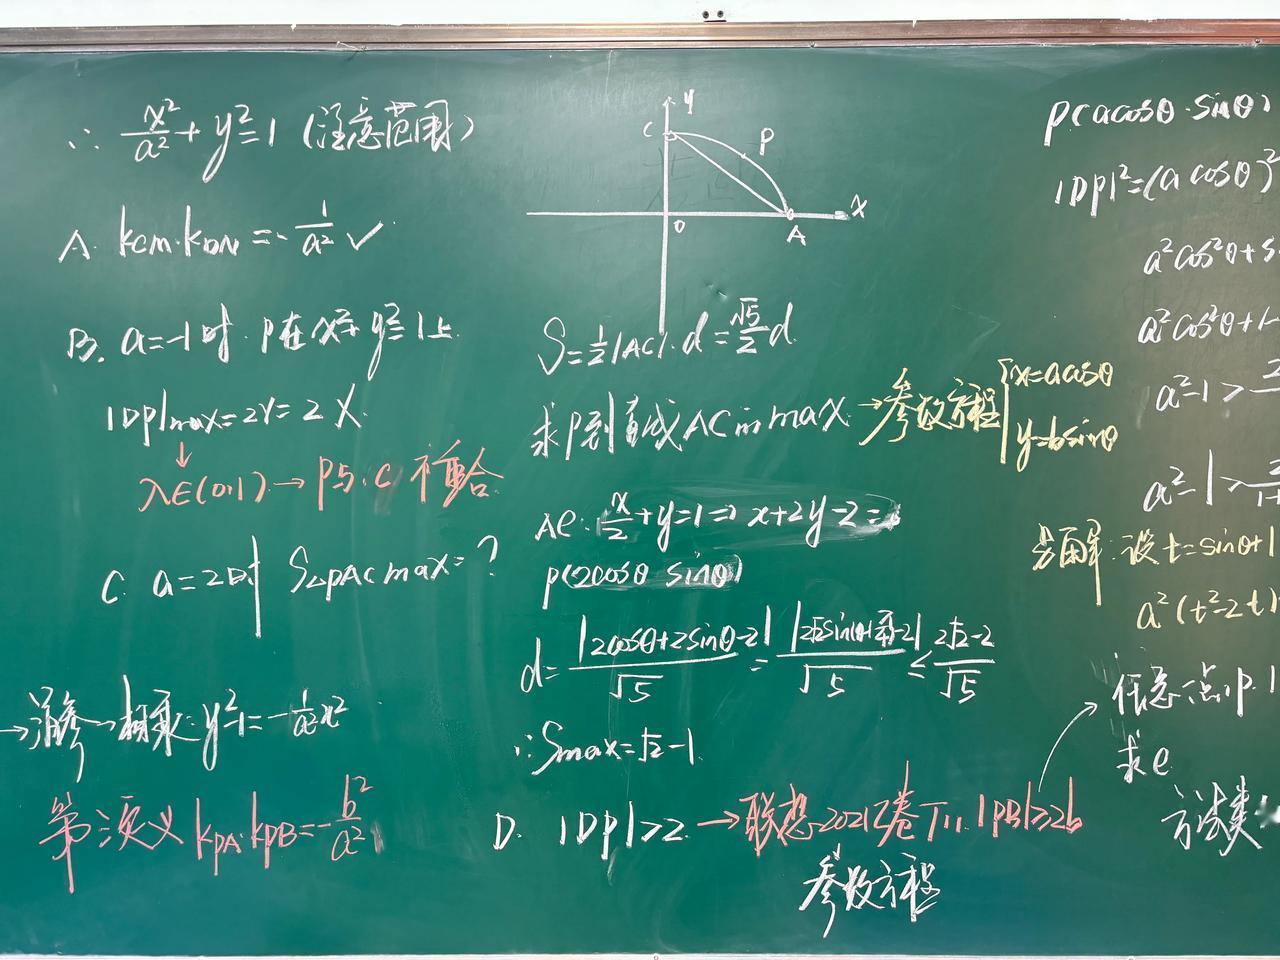 ∴ x²/a² + y² = 1 (注意范围)
A. kCM·kDN = -1/a² ✓
B. a=-1时 P在x²+y²=1上
|DP|max=2r=2 X.
↓
λ∈(0,1) → P与C不重合
C. a=2时 S△PAC max=?
→消参→相乘: y²-1=-1/a² x²
第三定义 kPA·kPB=-b²/a²
y
C
P
O
A
x
S=1/2|AC|·d=√5/2 d
求P到直线AC的max →参数方程{x=acosθ
y=bsinθ
AC: x/2+y=1⇒x+2y-2=0
P(2cosθ sinθ)
d=|2cosθ+2sinθ-2|/√5=|2√2sin(θ+π/4)-2|/√5≤(2√2-2)/√5
∴Smax=√2-1
D. |DP|>2 →联想2021乙卷T11. |PB|>2b
参数方程
P(acosθ·sinθ)
|DP|²=(acosθ)²
a²cos²θ+s
a²cos²θ+1-
a²-1>2
a²-1>2/1+
另解:设t=sinθ+1
a²(t²-2t)
任意一点P.|
求e
方法类